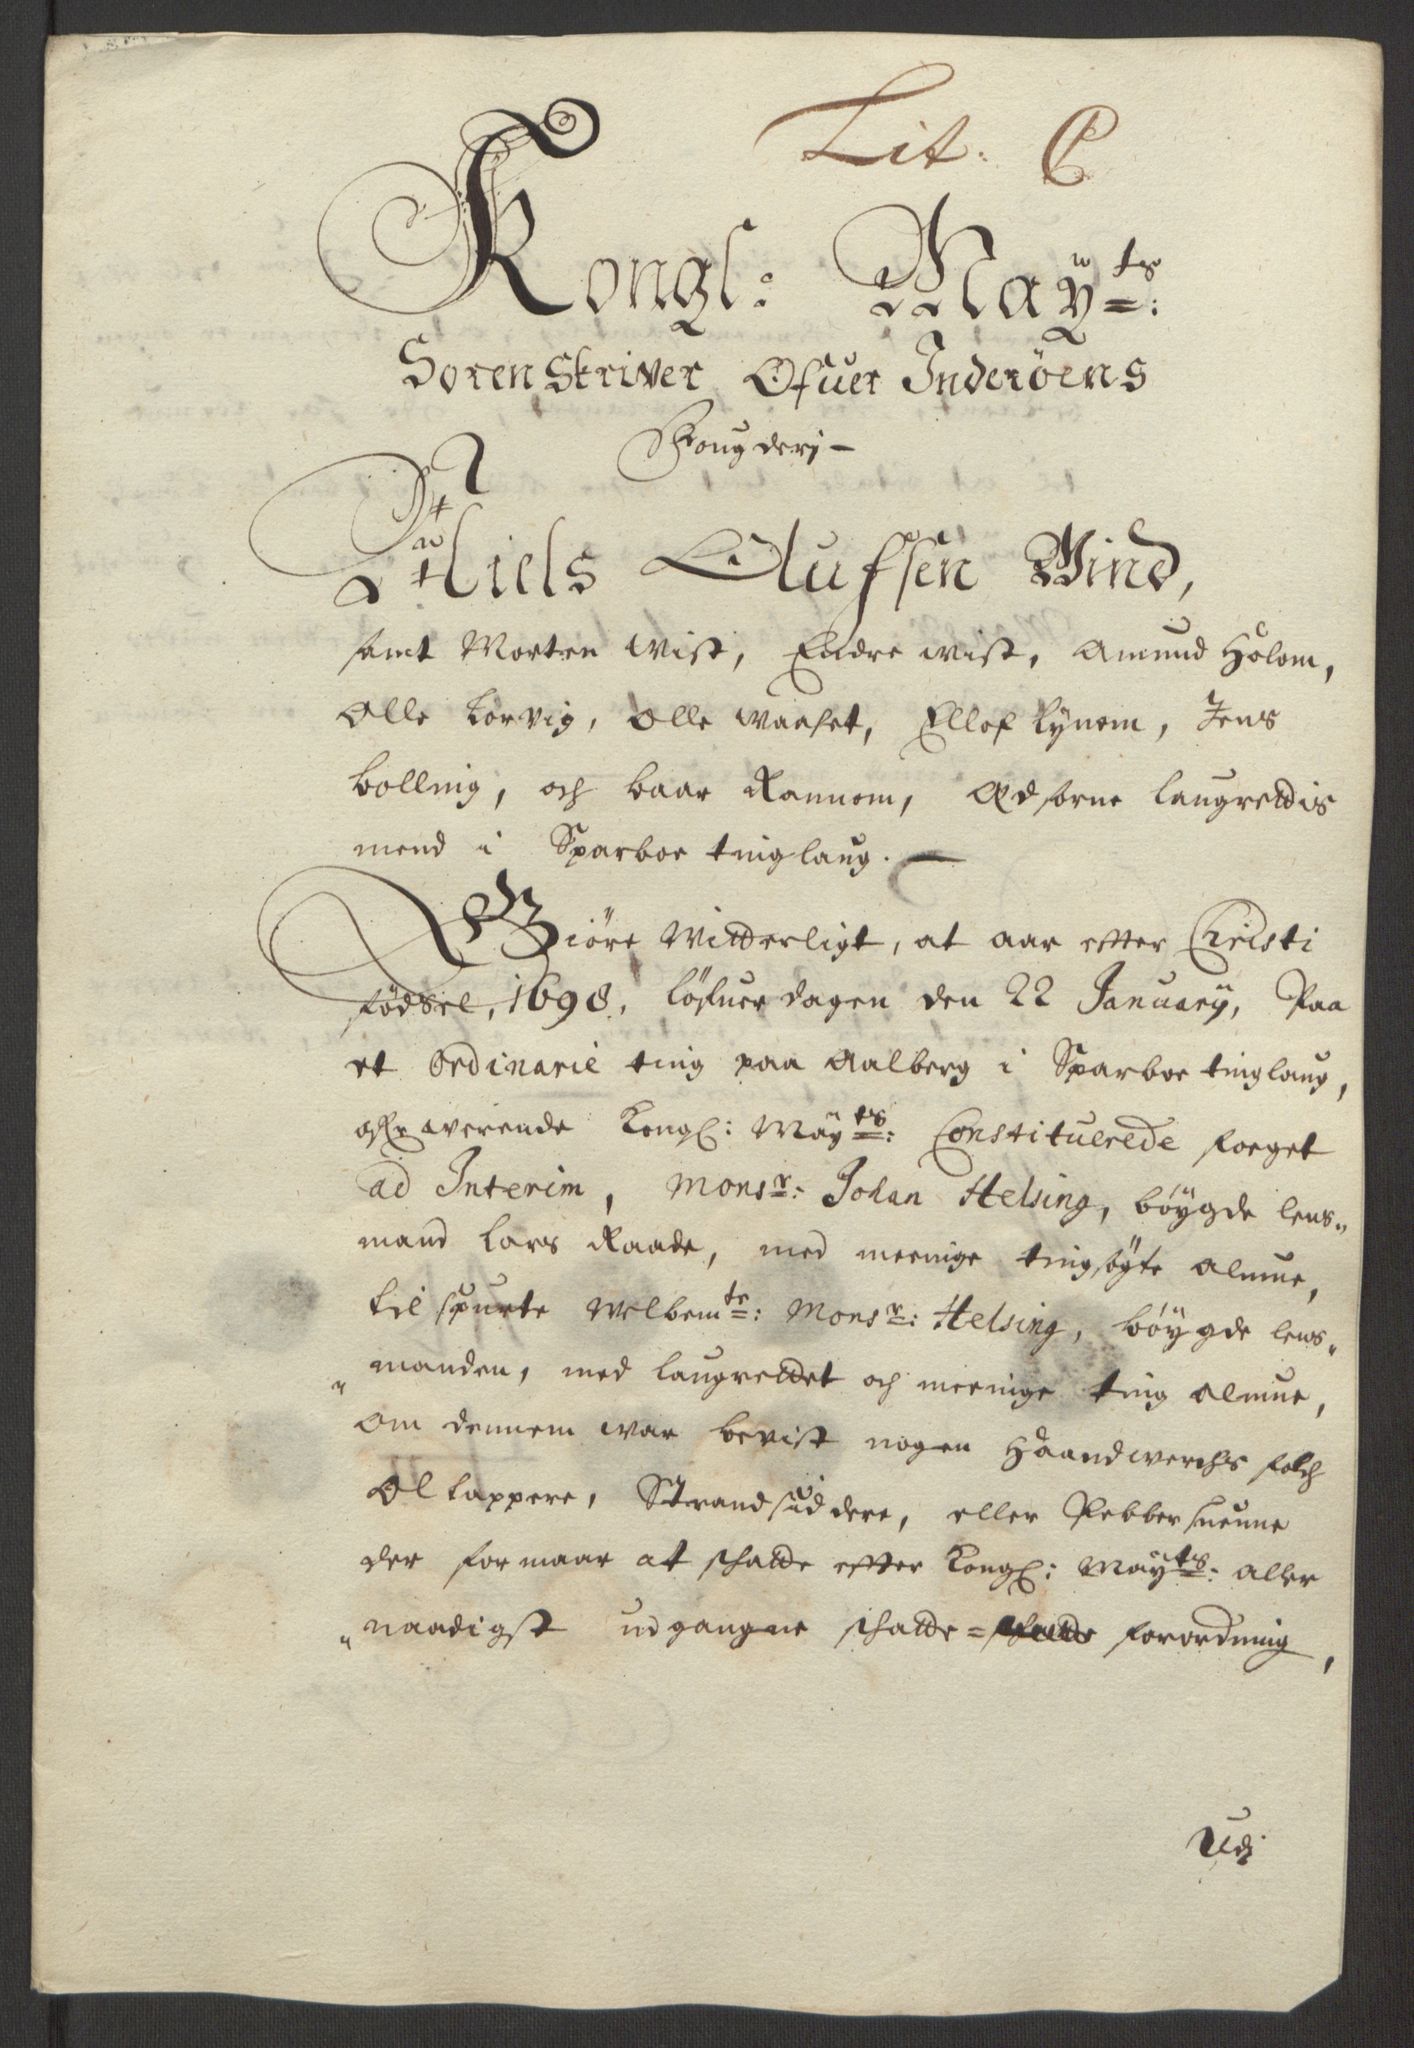 Lit: C
Kongl: Maÿts:
Sorenskriver Ofuer Inderöens
Fougderj
Niels Olufsen Wind,
samt Morten Wist, Endre Wist, Amund Holom,
Olle Korvig, Olle Waaset, Ellof Lÿnom, Jens
bolling, och baar Rannem, Edsorne laugrettis
mend i Sparboe tinglaug.
Giöre Witterligt, at aar efter Christi
födsel, 1698, löfuerdagen den 22 Januarÿ, Paa
et Ordinarie ting paa Aalberg i Sparboe tinglaug,
ofverwerende Kongl: Maÿts: Constituerede foeget
ad Interim, Monsr: Johan Helsing, böÿgde lens=
mand Lars Raade, med meenige tingsögte almue,
tilspurte Welbemte: Monsr: Helsing, böÿgde lens=
manden, med laugrettet och meenige ting almue,
om dennem war bevist nogen Haandwerchs folch
Öltappere, Strandsiddere, eller Pebbersuenne
der formaar at schatte efter Kongl: Maÿts: aller
naadigst udgangne schatte= forordning,
Udj